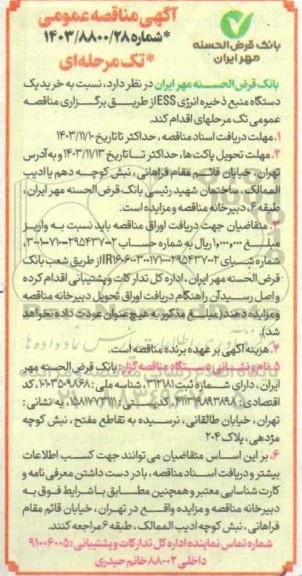 بانک قرض الحسنه
مهر ایران
آگهی مناقصه عمومی
*شماره ۱۴۰۳/۸۸۰۰/۲۸*
*تک مرحله‌ای*
بانک قرض الحسنه مهر ایران در نظر دارد، نسبت به خرید یک
دستگاه منبع ذخیره انرژی ESS از طریق برگزاری مناقصه
عمومی تک مرحله‌ای اقدام کند.
۱. مهلت دریافت اسناد مناقصه، حداکثر تا تاریخ ۱۴۰۳/۱۱/۱۰
۲. مهلت تحویل پاکت‌ها، حداکثر تا تاریخ ۱۴۰۳/۱۱/۱۳ و به آدرس
تهران، خیابان قائم مقام فراهانی، نبش کوچه دهم یا ادیب
الممالک، ساختمان شهید رئیسی بانک قرض الحسنه مهر ایران،
طبقه ۶، دبیرخانه مناقصه و مزایده است.
۳. متقاضیان جهت دریافت اوراق مناقصه باید نسبت به واریز
مبلغ ۱٫۰۰۰٫۰۰۰ ریال به شماره حساب
شماره شبای از طریق شعب بانک
قرض الحسنه مهر ایران، اداره کل تدارکات و پشتیبانی اقدام کرده
و اصل رسید آن را هنگام دریافت اوراق تحویل دبیرخانه مناقصه
و مزایده دهند (مبلغ مذکور به هیچ عنوان عودت داده نخواهد
شد).
۴. هزینه آگهی بر عهده برنده مناقصه است.
۵. نام و نشانی دستگاه مناقصه گزار: بانک قرض الحسنه مهر
ایران، دارای شماره ثبت ۳۱۲۱۸۱، شناسه ملی:
اقتصادی: ۴۱۱۳۴۸۹۳۹۸۹۱، کد پستی: ۱۵۸۱۷۷۳۱۱۱، به نشانی:
تهران، خیابان طالقانی، نرسیده به تقاطع مفتح، نبش کوچه
مژدهی، پلاک ۲۰۴
۶. بر این اساس متقاضیان می توانند جهت کسب اطلاعات
بیشتر و دریافت اسناد مناقصه، با در دست داشتن معرفی نامه و
کارت شناسایی معتبر و همچنین مطابق با شرایط فوق به
دبیرخانه مناقصه و مزایده واقع در تهران، خیابان قائم مقام
فراهانی، نبش کوچه ادیب الممالک، طبقه ۶ مراجعه کنند.
شماره تماس نماینده اداره کل تدارکات و پشتیبانی: ۹۱۰۰۶۰۰۵
داخلی ۸۸۰۰۲ خانم حیدری